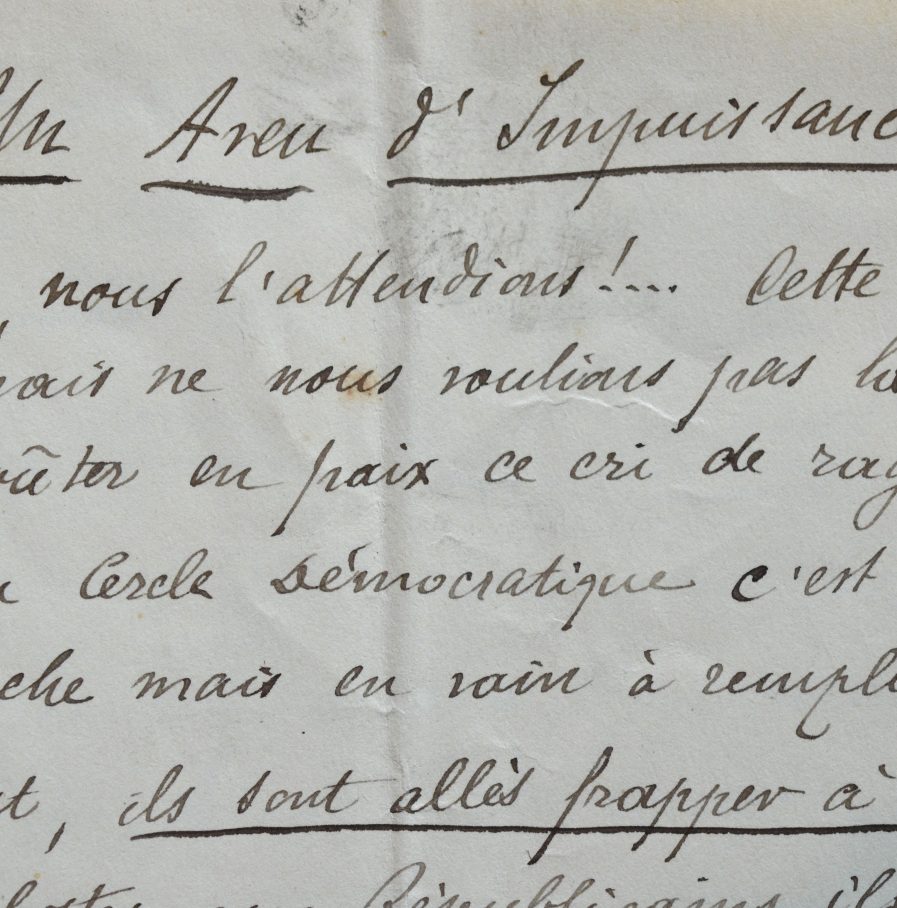 Un Aveu d'Impuissanc
, nous l'attendions !.... Cette
ais ne nous voulions pas la
ûter en paix ce cri de rag
Cercle Démocratique c'est
che mais en vain à rempl
t, ils sont allès frapper à
Républicains ils